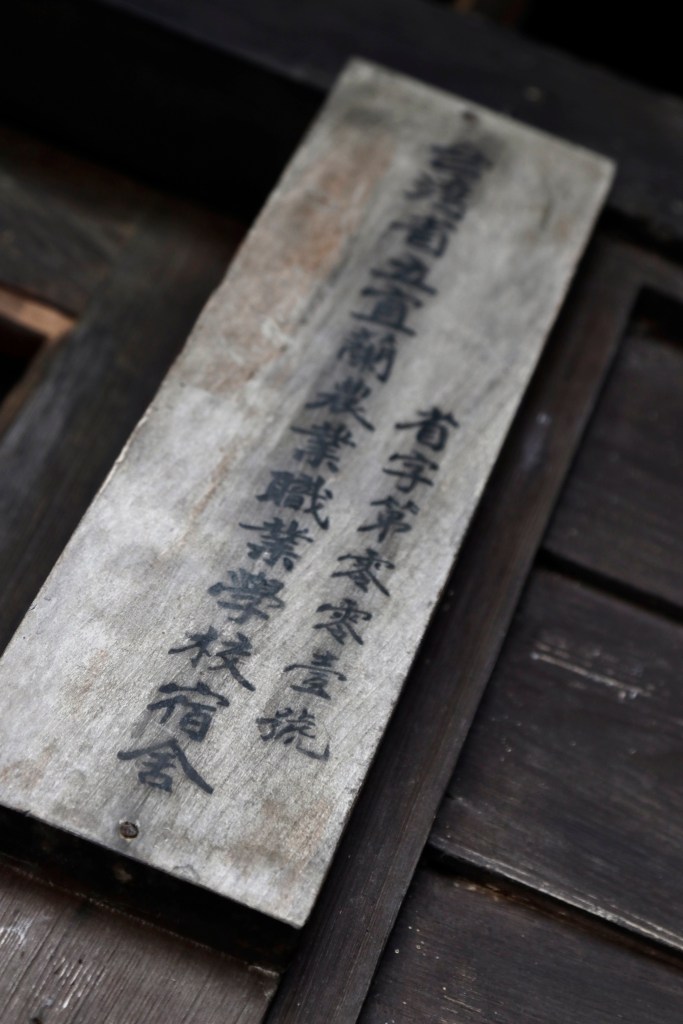 省字第零零壹號
台湾省立宜蘭農業職業學校宿舍